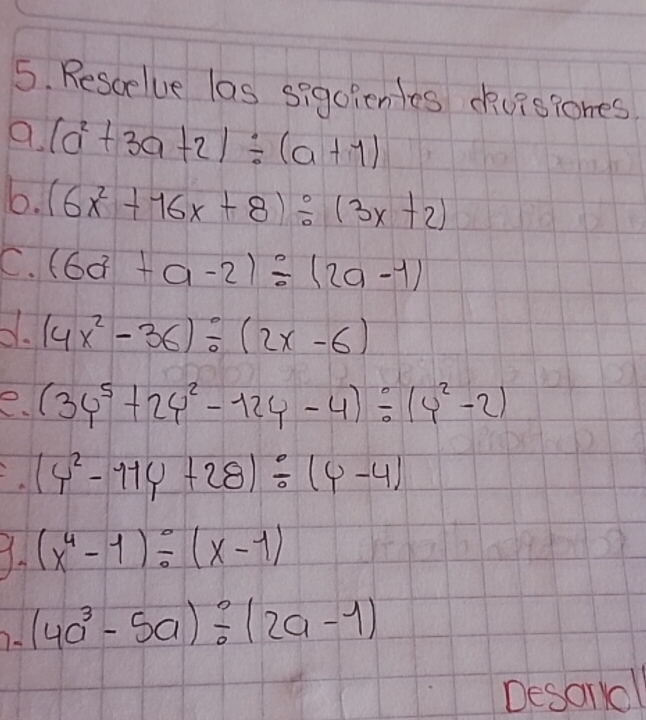 5. Resuelve las siguientes divisiones.
a. (a² + 3a + 2) ÷ (a + 1)
b. (6x² + 16x + 8) ÷ (3x + 2)
c. (6a² + a - 2) ÷ (2a - 1)
d. (4x² - 36) ÷ (2x - 6)
e. (3y⁵ + 2y² - 12y - 4) ÷ (y² - 2)
(y² - 11y + 28) ÷ (y - 4)
g. (x⁴ - 1) ÷ (x - 1)
(4a³ - 5a) ÷ (2a - 1)
Desarroll